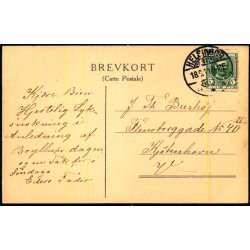 BREVKORT
(Carte Postale)
HELSINGØR
18.5.
Kjære Børn
Hjertelig Lyk-
ønskning i
Anledning af
Bryllups dagen
og en Tak for i
Søndags
Eders Fader
J Th Burhøj
Flensborggade N 40
Kjøbenhavn
V